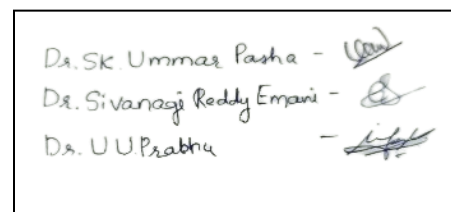 Dr. SK. Ummar Pasha -
Dr. Sivanagi Reddy Emani -
Dr. U U.Prabhu -